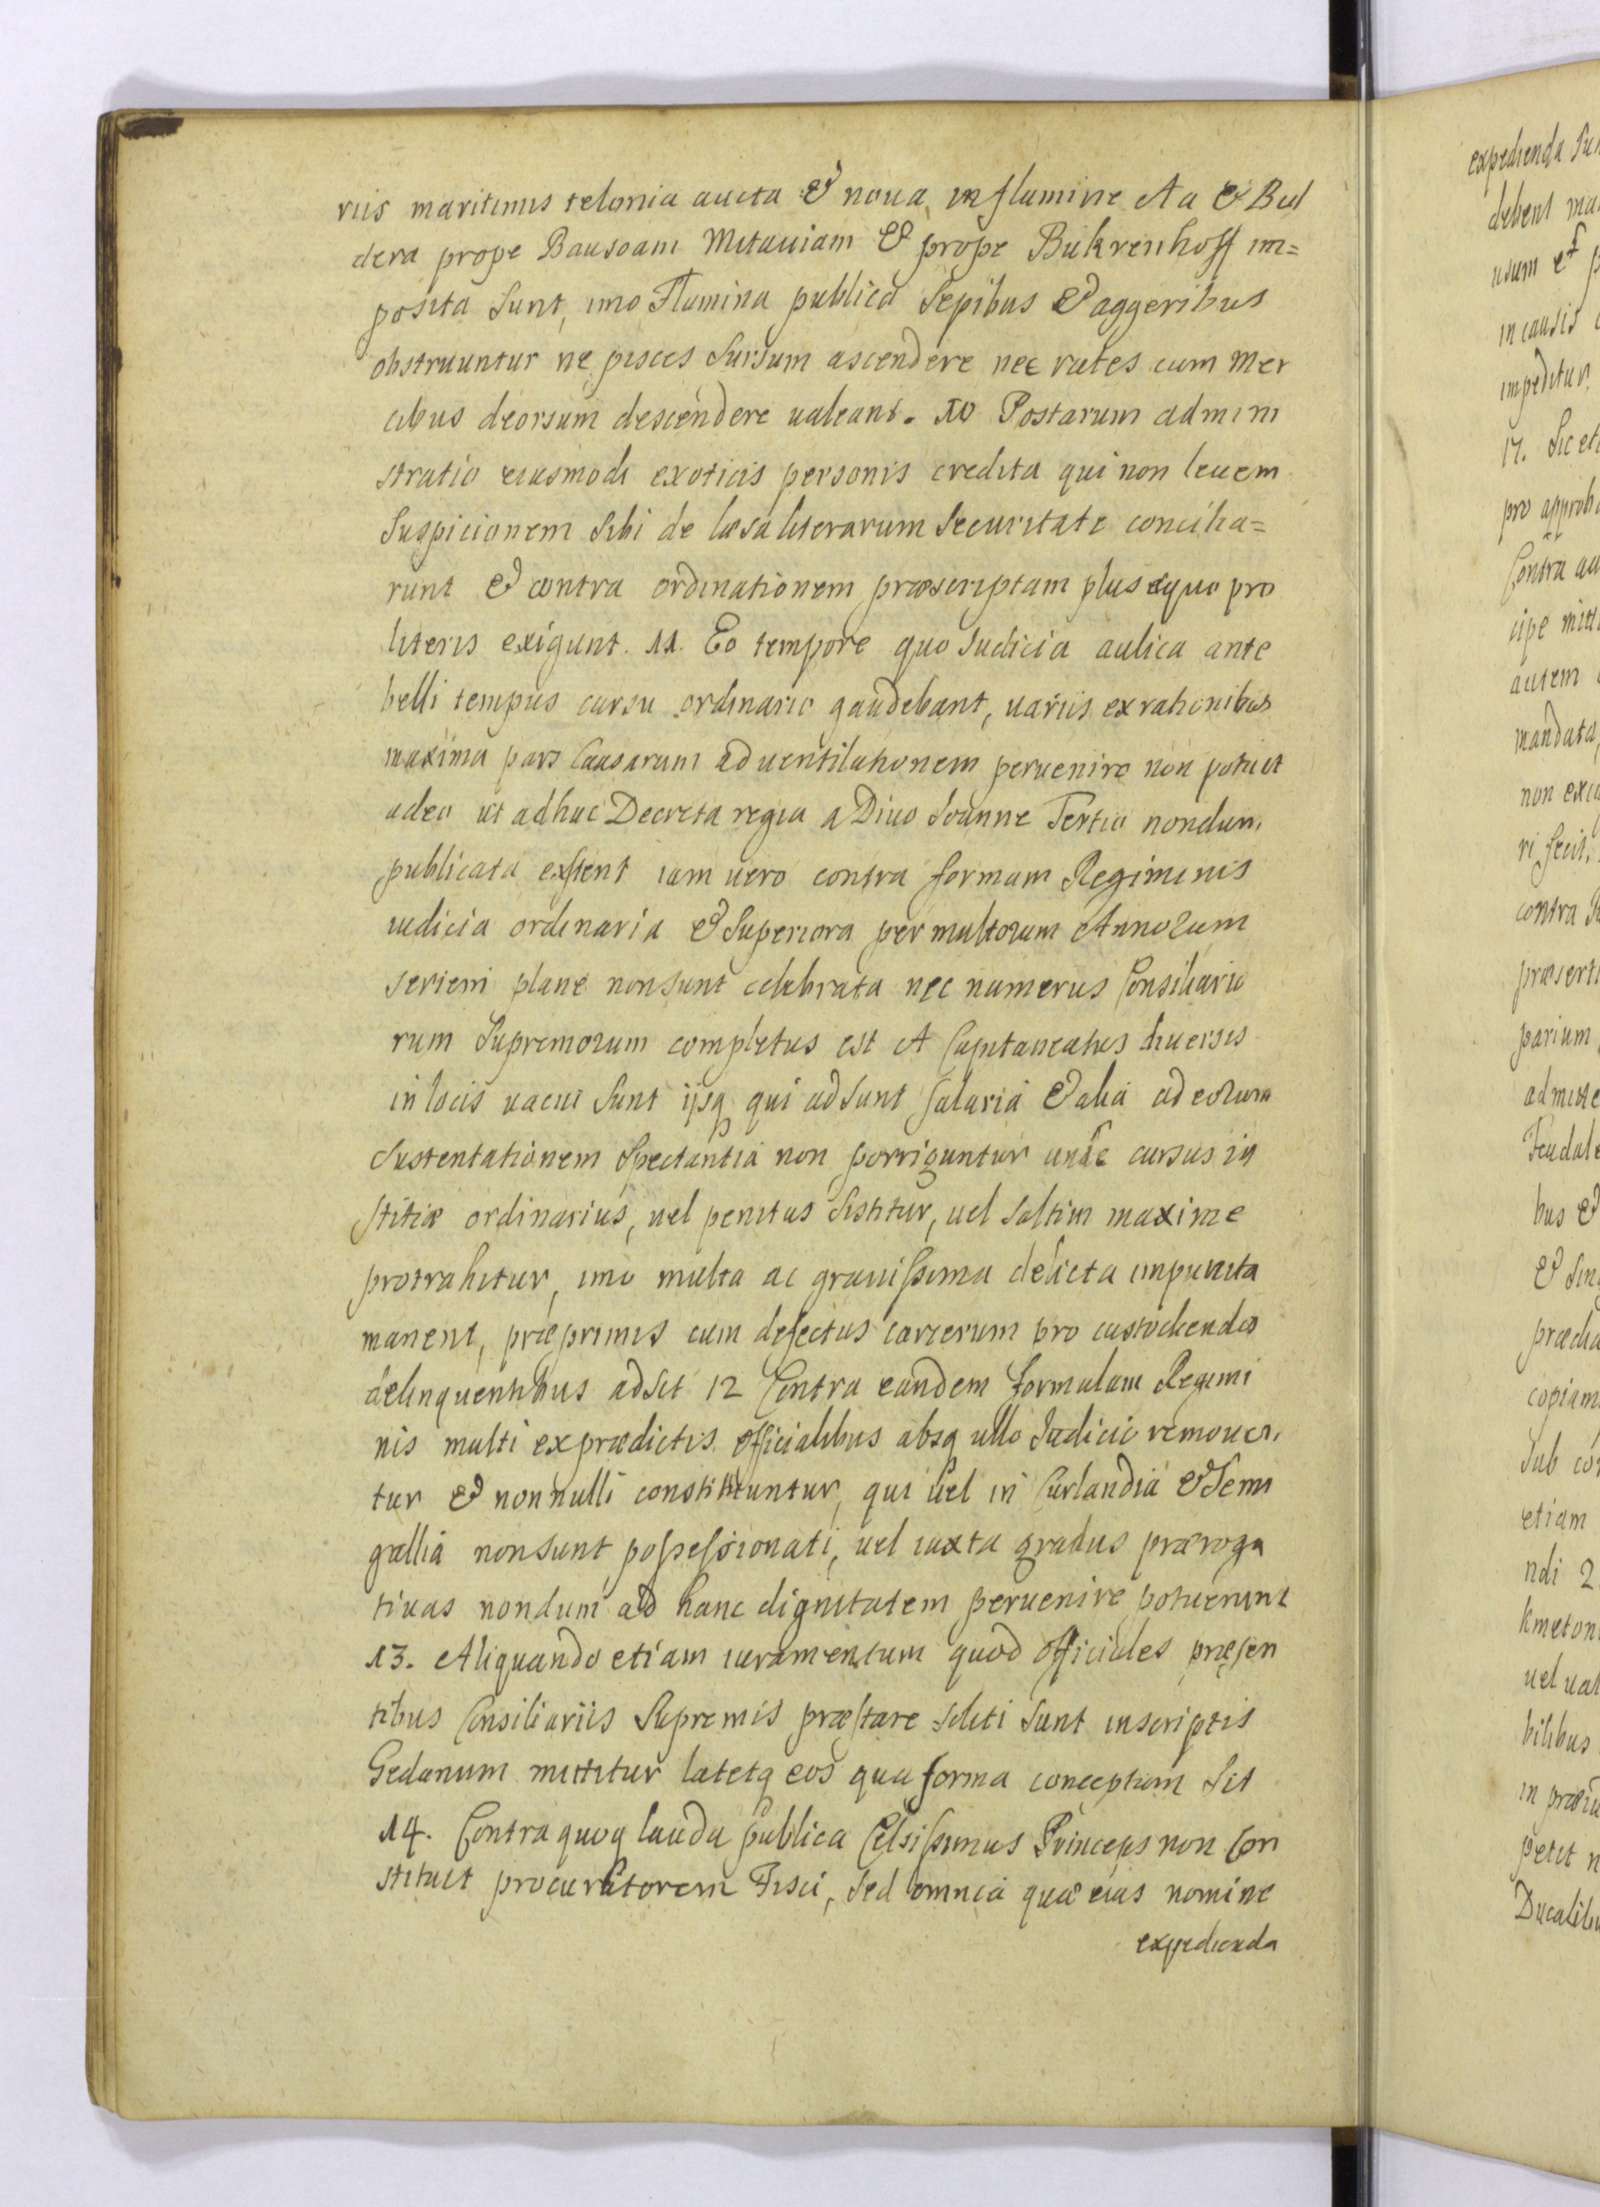 riis maritimis telonia aucta & noua in flumine Aa & Bul
dera prope Bausoam Mitauiam & prope Bukrenhoff im=
posita sunt, imo Flumina publica sepibus & aggeribus
obstruuntur ne pisces sursum ascendere nec rates cum mer
cibus deorsum descendere ualeant. 10 Postarum admini
stratio eiusmodi exoticis personis credita qui non leuem
suspicionem sibi de læsa literarum securitate concilia=
runt & contra ordinationem præscriptam plus æquo pro
literis exigunt. 11. Eo tempore quo Iudicia aulica ante
belli tempus cursu ordinario gaudebant, uariis ex rationibus
maxima pars Causarum ad uentilationem peruenire non potuit
adeo ut adhuc Decreta regia a Diuo Ioanne Tertio nondum
publicata extent iam uero contra formam Regiminis
iudicia ordinaria & Superiora per multorum Annorum
seriem plane non sunt celebrata nec numerus Consiliario
rum Supremorum completus est A Capitaneatus diuersis
in locis uacui sunt ijsq qui adsunt salaria & alia ad eorum
sustentationem spectantia non porriguntur unde cursus iu
stitiæ ordinarius, uel penitus sistitur, uel saltim maxime
protrahitur, imo multa ac grauissima delicta impunita
manent, præprimis cum defectus carcerum pro custodiendis
delinquentibus adsit 12 Contra eandem formulam Regimi
nis multi ex prædictis officialibus absq ullo Iudicio remouen
tur & nonnulli constituuntur, qui uel in Curlandia & Semi
gallia non sunt possessionati, uel iuxta gradus præroga
tiuas nondum ad hanc dignitatem peruenire potuerunt
13. Aliquando etiam iuramentum quod officiales præsen
tibus Consiliariis Supremis præstare soliti sunt in scriptis
Gedanum mittitur latetq eos qua forma conceptum sit
14. Contra quoq lauda publica Celsissimus Princeps non Con
stituit procuratorem Fisci, sed omnia quæ eius nomine
expedienda
expedienda
debent
usum et
in causis
impeditur
17. Sic
pro
Contra
cipe
autem
mandata,
non
ri fecit.
contra
parium
bus &
&
copiam
sub
etiam
ndi 2
uel
bilibus
in
petit